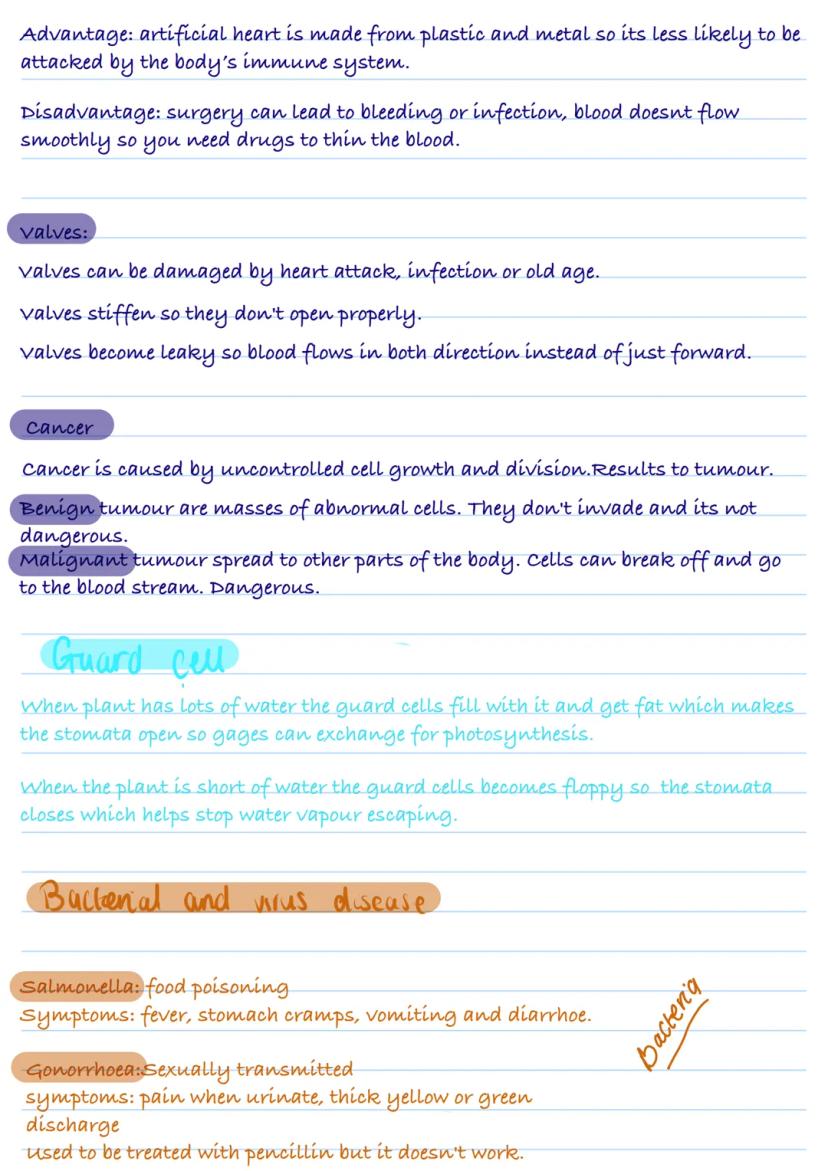 Advantage: artificial heart is made from plastic and metal so its less likely to be
attacked by the body's immune system.
Disadvantage: surgery can lead to bleeding or infection, blood doesnt flow
smoothly so you need drugs to thin the blood.
Valves:
Valves can be damaged by heart attack, infection or old age.
Valves stiffen so they don't open properly.
Valves become leaky so blood flows in both direction instead of just forward.
Cancer
Cancer is caused by uncontrolled cell growth and division.Results to tumour.
Benign tumour are masses of abnormal cells. They don't invade and its not
dangerous.
Malignant tumour spread to other parts of the body. Cells can break off and go
to the blood stream. Dangerous.
Guard cell
When plant has lots of water the guard cells fill with it and get fat which makes
the stomata open so gages can exchange for photosynthesis.
When the plant is short of water the guard cells becomes floppy so the stomata
closes which helps stop water vapour escaping.
Bacterial and virus disease
Salmonella: food poisoning
Symptoms: fever, stomach cramps, vomiting and diarrhoe.
Bacteria
Gonorrhoea:Sexually transmitted
symptoms: pain when urinate, thick yellow or green
discharge
Used to be treated with pencillin but it doesn't work.